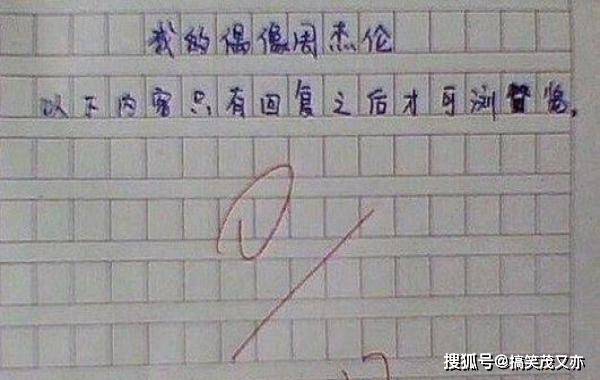 我的偶像周杰伦
以下内容只有回复之后才可浏览。
搜狐号@搞笑茂又亦